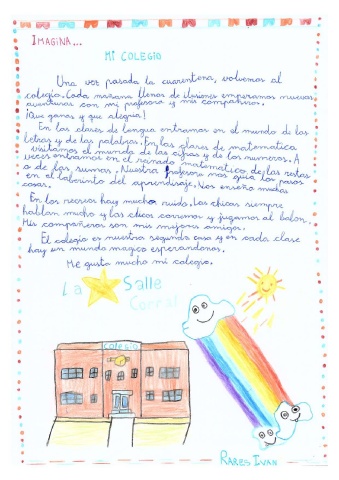 IMAGINA...
MI COLEGIO
Una vez pasada la cuarentena, volvemos al
colegio. Cada mañana llenos de ilusiones empezamos nuevas
aventuras con mi profesora y mis compañeros.
¡Que ganas y que alegria!
En las clases de lengua entramos en el mundo de las
letras y de las palabras. En las clases de matematica
visitamos el mundo de las cifras y de los numeros. A
veces entramos en el matematico de las restas
o de las sumas. Nuestra profesora nos guia los pasos
en el laberinto del aprendizaje. Nos enseña muchas
cosas.
En los recreos hay mucho ruido. Las chicas siempre
hablan mucho y los chicos corremos y jugamos al balon.
Mis compañeros son mis mejores amigos.
El colegio es nuestra segunda casa y en cada clase
hay un mundo magico esperandonos.
Me gusta mucho mi colegio.
La Salle
Corral
COLEGIO
RARES IVAN